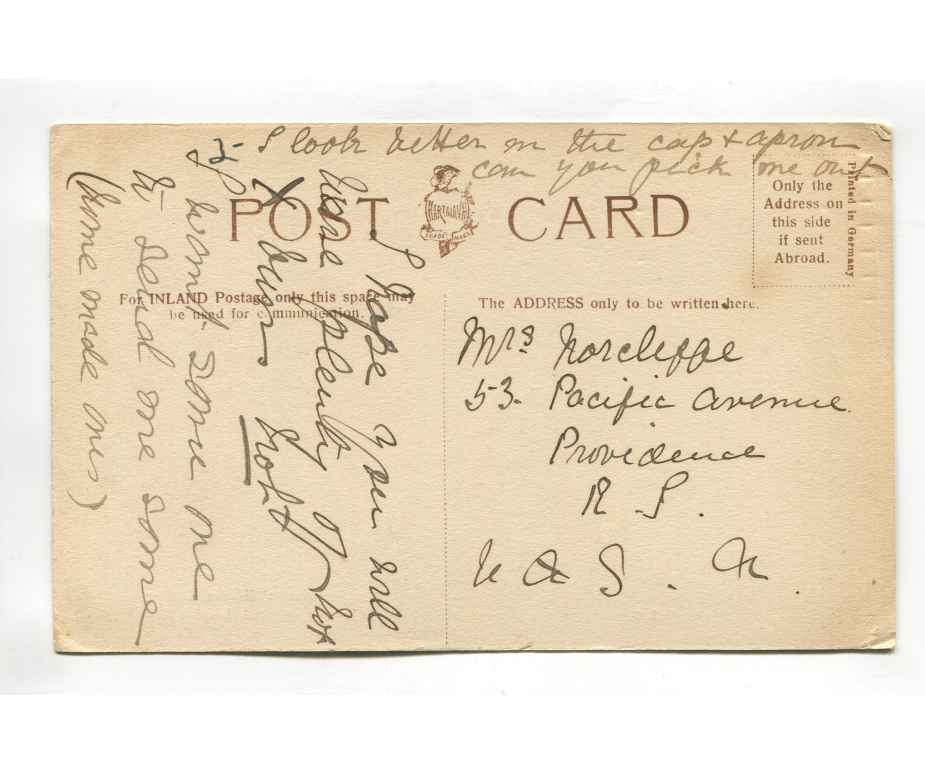 I look better in the cap & apron
can you pick me out
2-
POST CARD
Printed in Germany
Only the
Address on
this side
if sent
Abroad.
For INLAND Postage only this space may
be used for communication.
The ADDRESS only to be written here.
I hope you will
have plenty of hot
X buns hot
I want some one
to send me some
(home made ones)
Mrs Norcliffe
53. Pacific Avenue
Providence
R I.
U S.